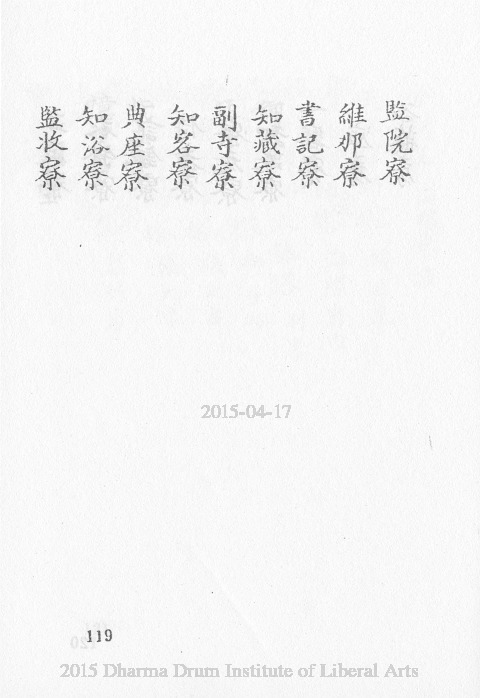 監院寮
維那寮
書記寮
知藏寮
副寺寮
知客寮
典座寮
知浴寮
監收寮
2015-04-17
119
2015 Dharma Drum Institute of Liberal Arts